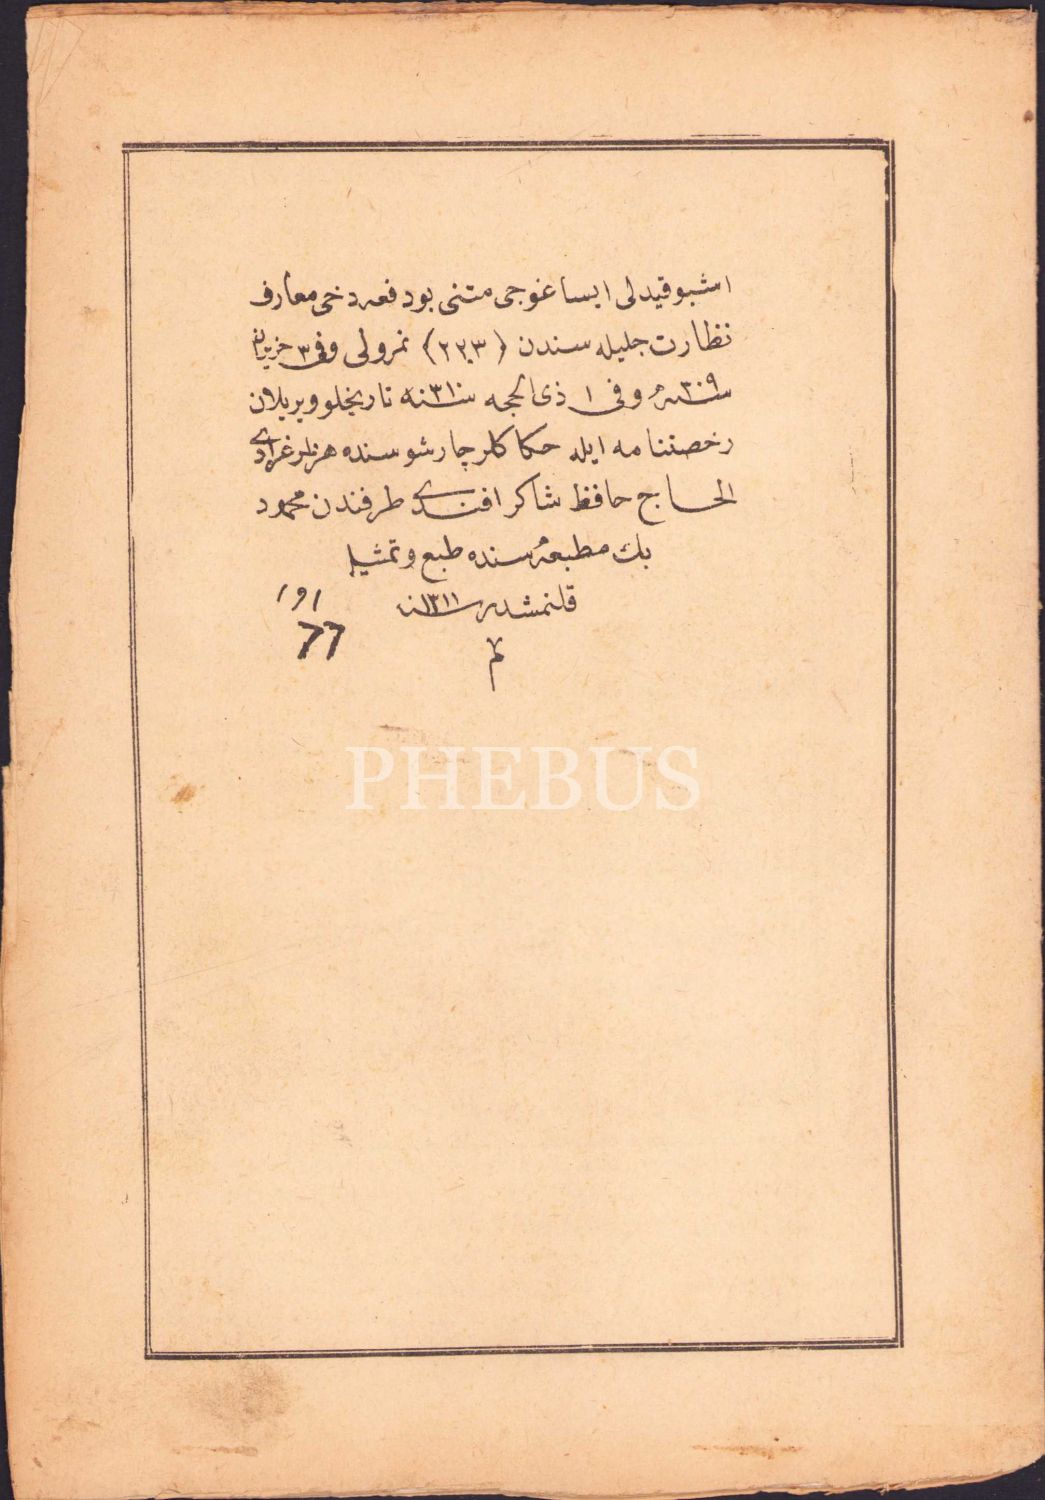 اشبو قيدلى ايساغوجى متنى بو دفعه دخى معارف
نظارت جليله سندن (٢٢٣) نمرولى وفى ٣ حزيران
سنه ٣٠٩ وفى ١ ذى الحجه سنه ٣١٠ تاريخلو ويريلان
رخصتنامه ايله حكاكلر چارشوسنده
الحاج حافظ شاكر افندى طرفندن محمود
بك مطبعه سنده طبع وتمثيل
قلنمشدر سنه ١٣١١
م
PHEBUS